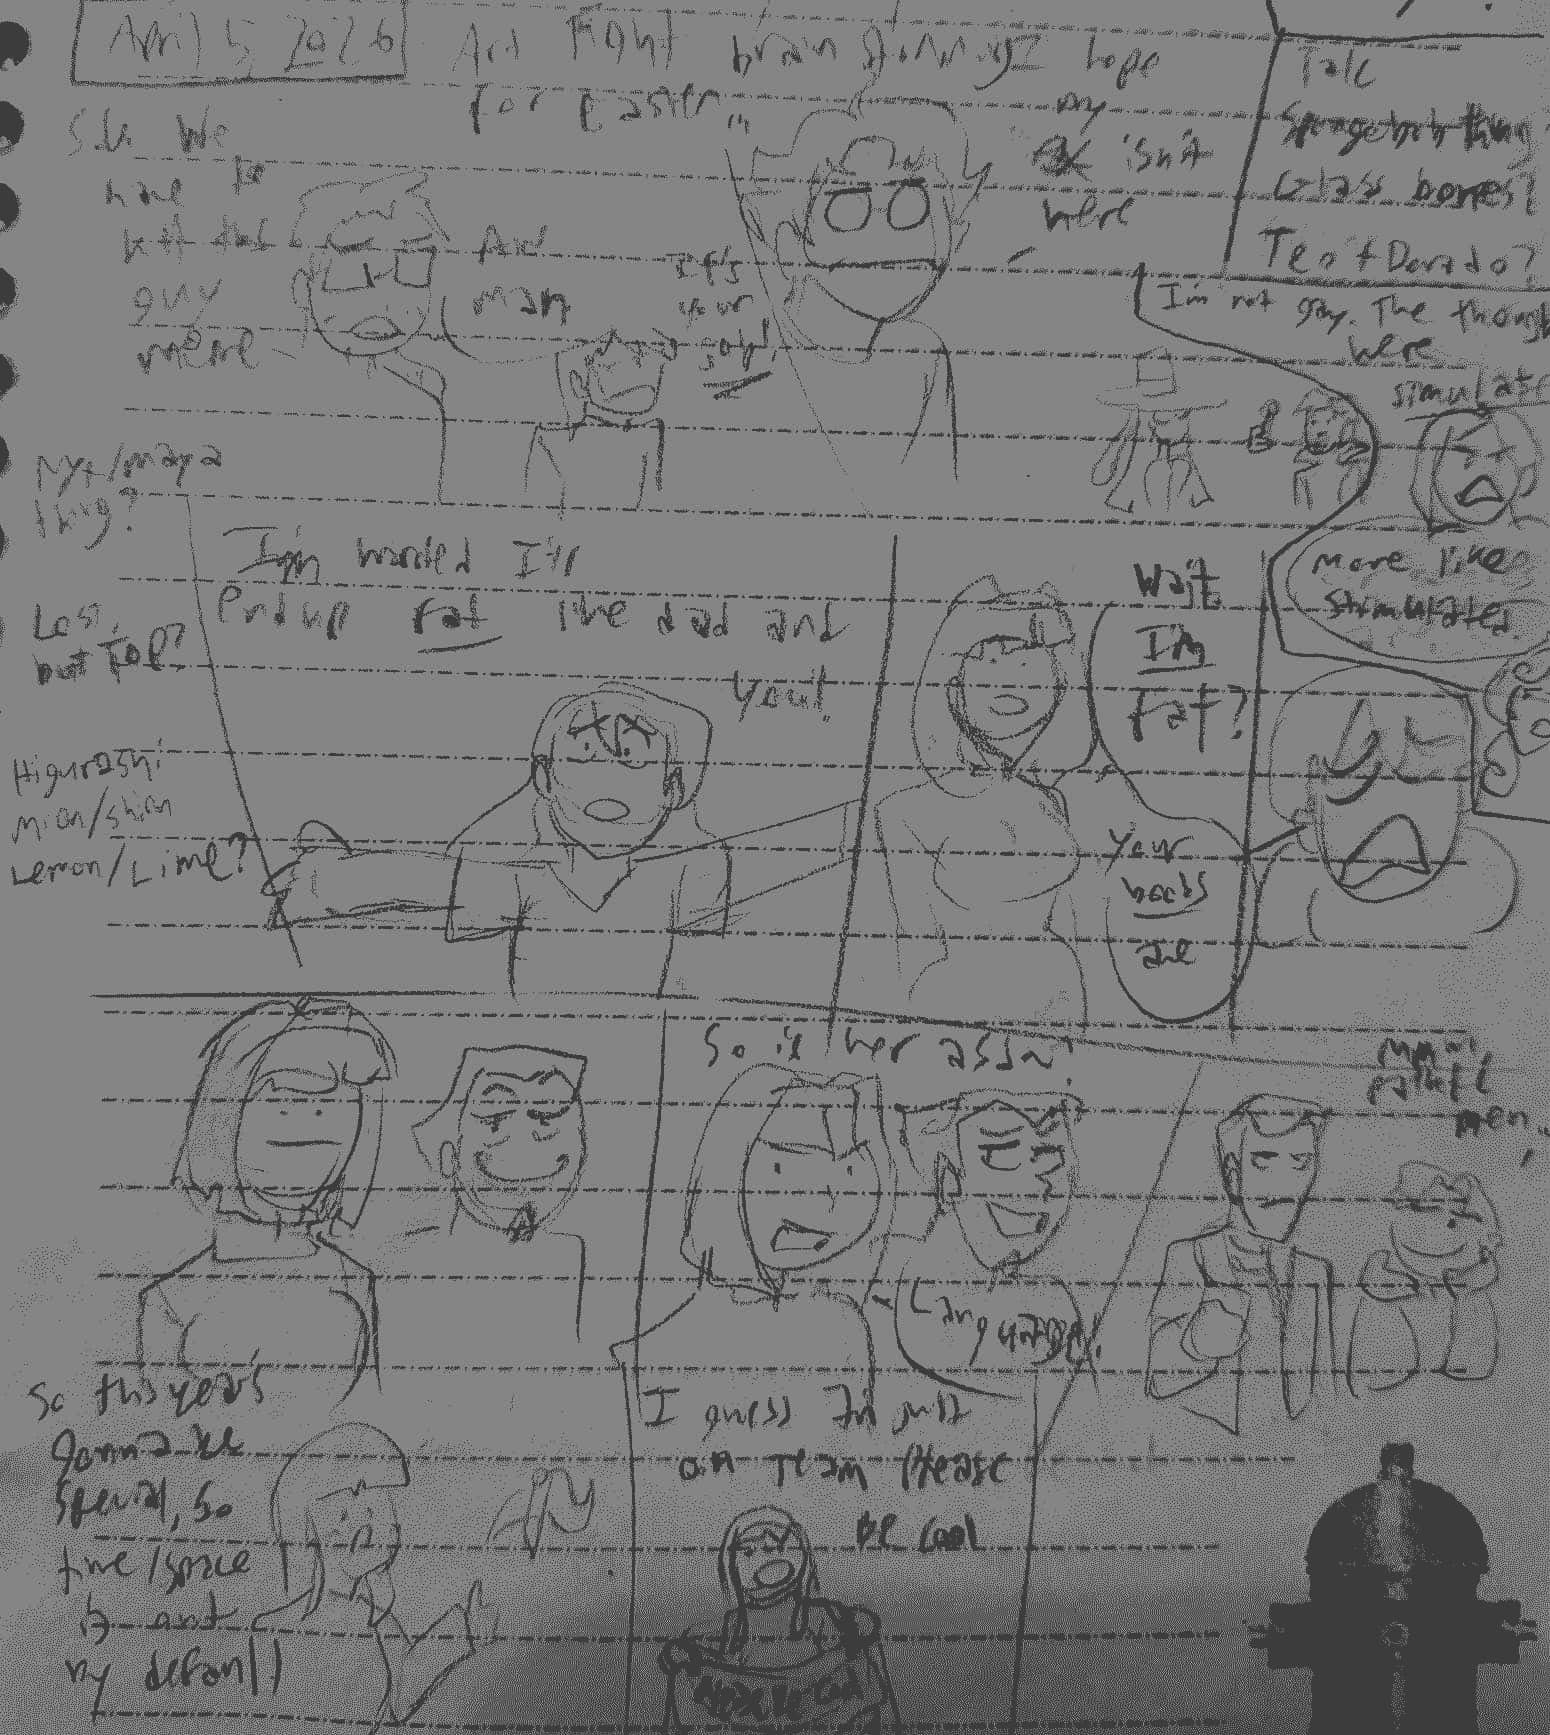 April 5, 2026
Art Fight brain storming
for easter
S.U. We
have to
guy
meme
Aw
man
It's
your
I hope
my
isn't
here
Talc
Spongebob thing
Glass bones?
Te o t Dorado?
I'm not gay. The though
were
simulate
More like
Stimulated
Nyx/maya
thing?
Less,
but
Higurashi
mion/shion
Lemon/Lime?
I'm worried I'll
end up fat like dad and
you!!
Wait,
I'm
Fat?
Your
boobs
are
So is her ass
Language!
men
So this year's
gonna be
special, so
time/space
my default
I guess I'm just
on Team Please
Be Cool